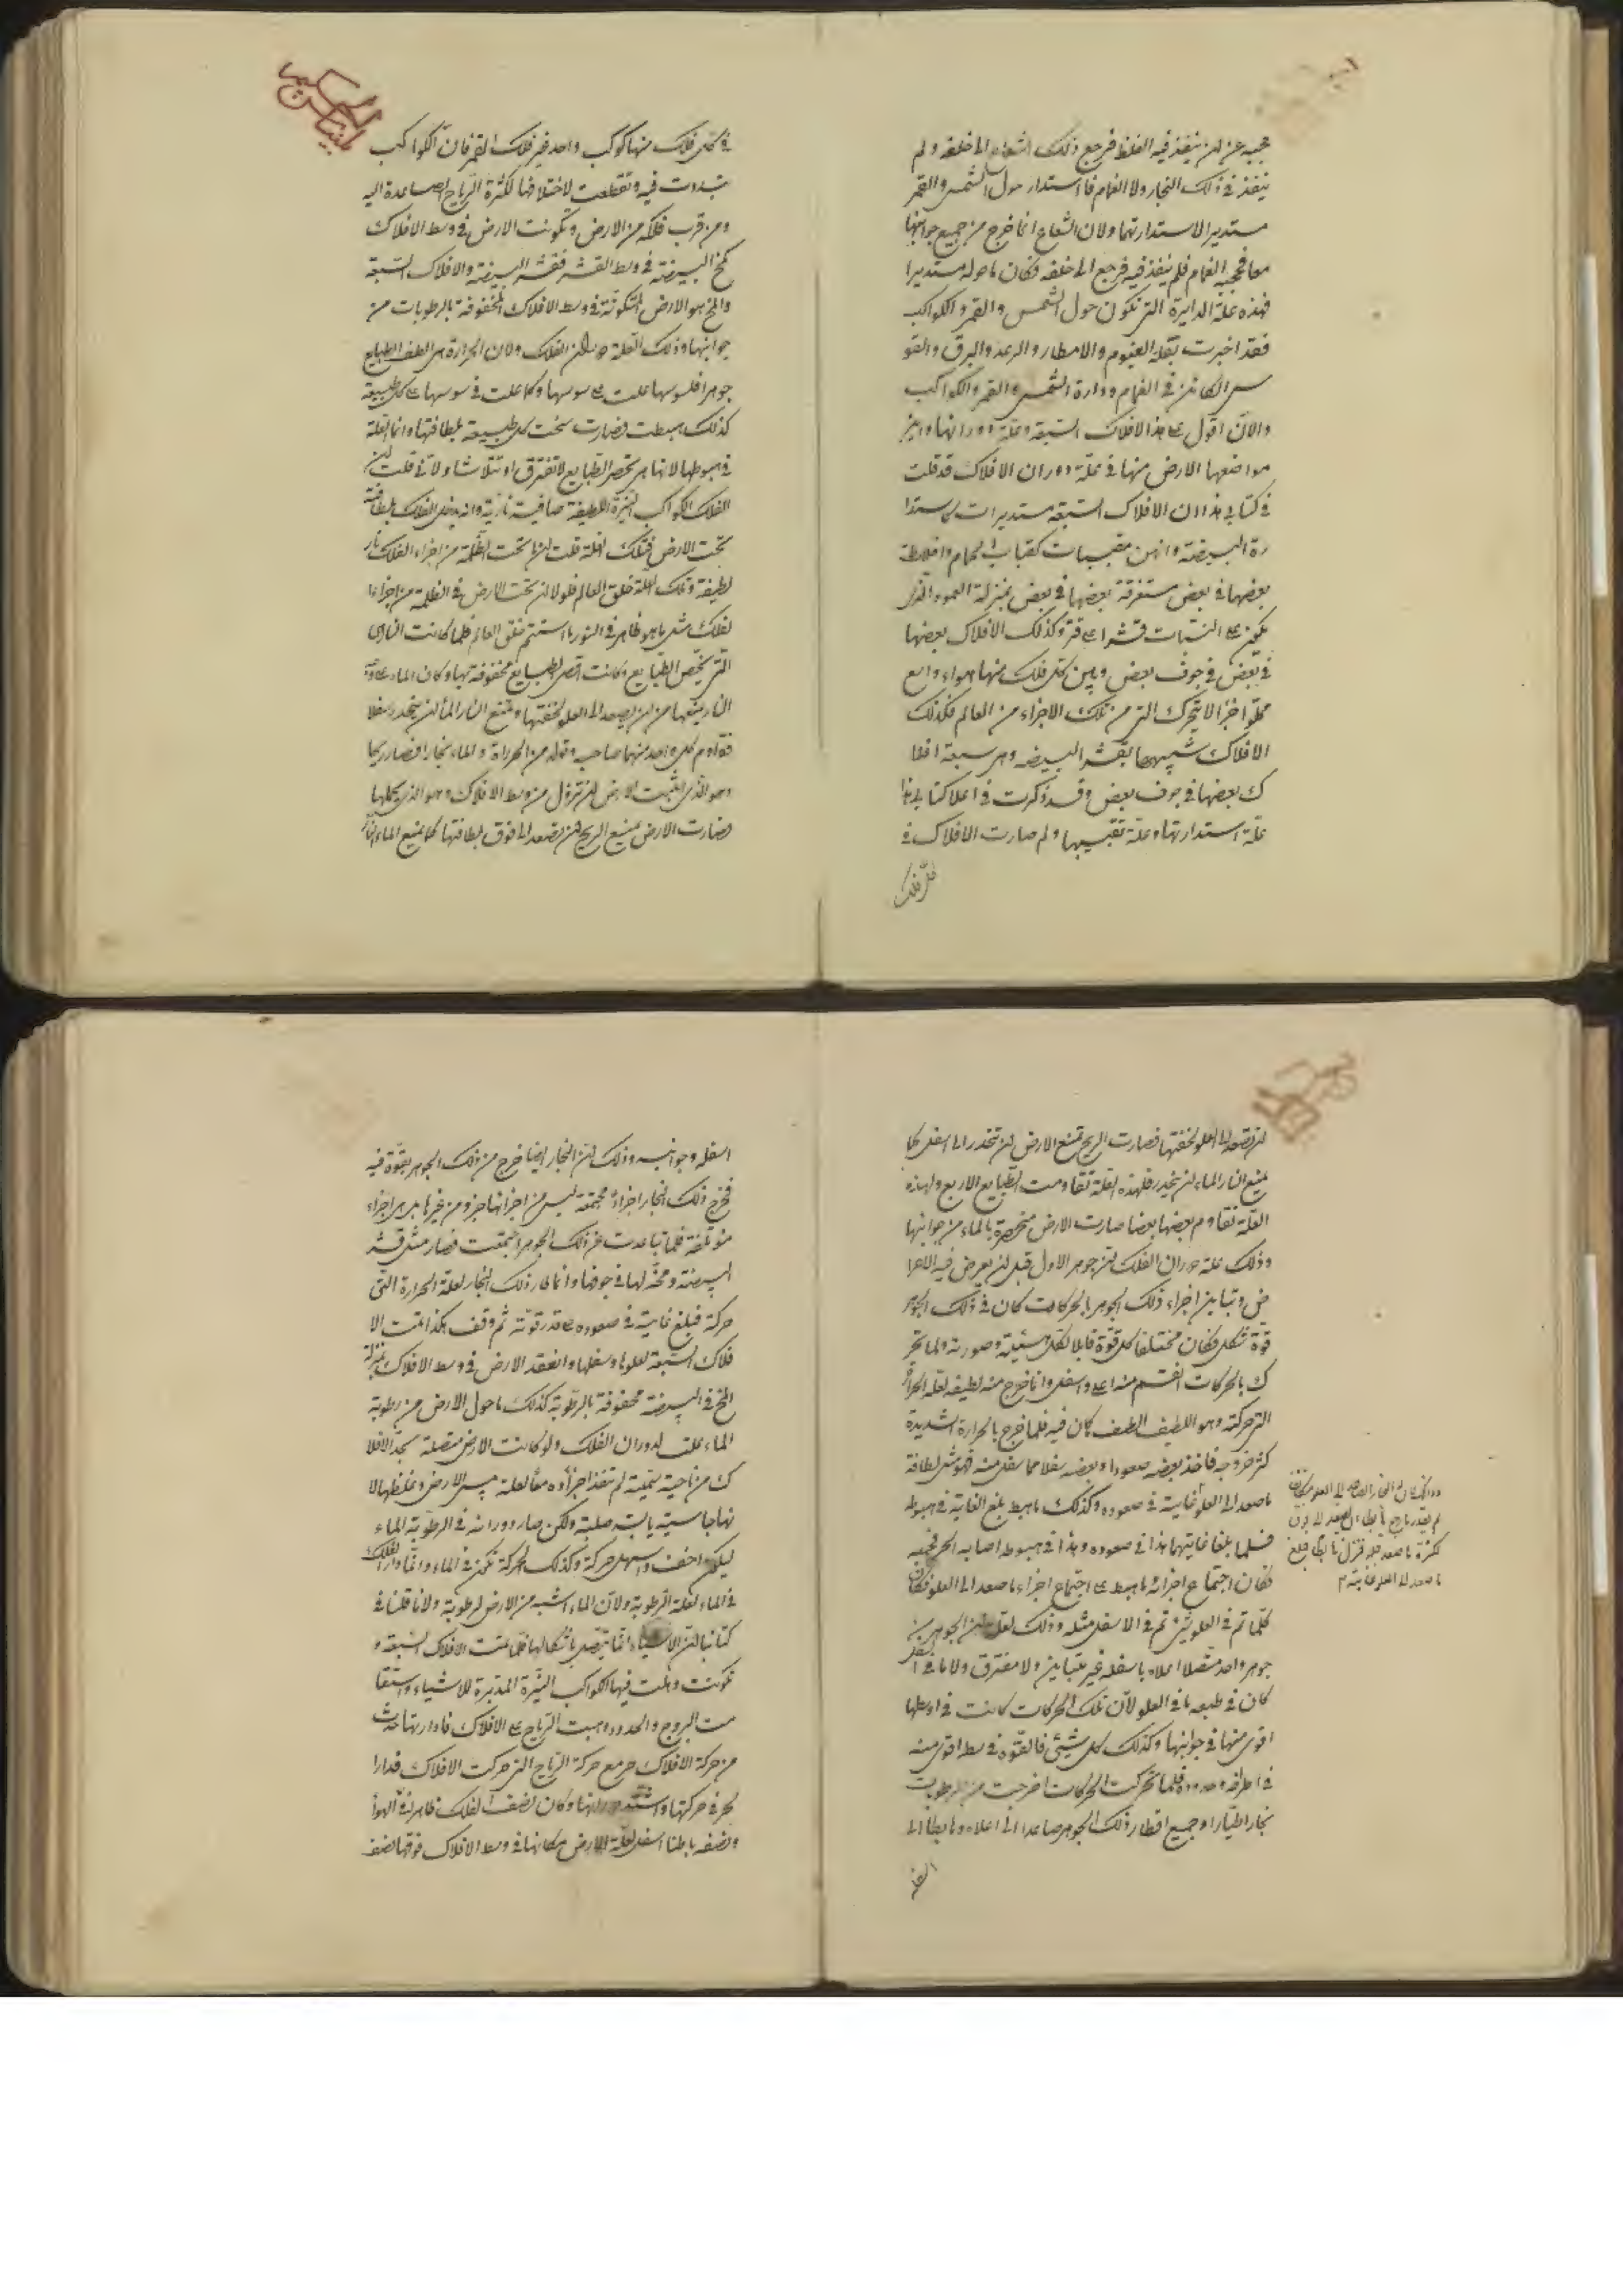 حجبه عن ان ينفذ فيه الغلظ فرجع ذلك الشعاع الى خلفه ولم
ينفذ في ذلك البخار ولا الغمام فاستدار حول الشمس والقمر
مستديرا لاستدارتهما ولان الشعاع انما خرج من جميع جوانبها
معا فحجبه الغمام فلم ينفذ فيه فرجع الى خلفه فكان ما حوله مستديرا
فهذه علة الدايرة التي تكون حول الشمس والقمر والكواكب
فقد اخبرت بعلة الغيوم والامطار والرعد والبرق والقو
س الكائن في الغمام ودارة الشمس والقمر والكواكب
والآن اقول على هذا الافلاك السبعة وعلة دورانها واين
مواضعها الارض منها في علة دوران الافلاك قد قلت
في كتابي هذا ان الافلاك السبعة مستديرات كاستدا
رة البيضة وانهن مقببات كقباب الحمام واختلاط
بعضها في بعض مستغرقة بعضها في بعض بمنزلة العمود الذي
يكون على النبات قشرا على قشرة وكذلك الافلاك بعضها
في بعض في جوف بعض وبين كل فلك منها هواء واسع
مملو اجزا لا يتحرك التي من تلك الاجزاء من العالم فكذلك
الافلاك شبيهها بقشر البيضه وهي سبعة افلا
ك بعضها في جوف بعض وقد ذكرت في اعلا كتابي هذا
علة استدارتها وعلة تقبيبها ولم صارت الافلاك في
كل فلك
في كل فلك منها كوكب واحد غير فلك القمر فان الكواكب
تبددت فيه وتقطعت لاختلافها لكثرة الرياح الصاعدة اليه
ومن قرب فلكه من الارض وتكونت الارض في وسط الافلاك
كمخ البيضة في وسط القشر فقشر البيضة والافلاك السبعة
والمخ هو الارض المتكونة في وسط الافلاك المحفوفة بالرطوبات من
جوانبها وذلك لعلة دوران الفلك ولان الحرارة هي الطف الطبايع
جوهرا فلسوسها علت على سوسها وكما علت في سوسها على كل طبيعة
كذلك هبطت فصارت تحت كل طبيعة بلطافتها وانما العلة
في هبوطها لانها هي تحصر الطبايع لا تفترق او تتلاشا ولاني قلت ان
الفلك الكواكب النيرة اللطيفة صافية نارية وانه يدخل الفلك بلطافته
تحت الارض فبتلك العلة قلت انما تحت الظلمة من اجزاء الفلك نار
لطيفة وتلك العلة خلق العالم فلولا ان تحت الارض في الظلمة من اجزاء ا
لفلك مثل ما هو ظاهر في النور ما استتم خلق العالم فلما كانت النار هي
التي تحص الطبايع وكانت اقصى الطبايع محفوفة بها وكان الماء على قوة
النار يمنعها من ان يصعد الى العلو لخفتها وتمنع النار الماء ان ينحدر سفلا
فقاوم كل واحد منهما صاحبه وقوله من الحرارة والماء بخارا فصار ريحا
وهو الذي اثبت الارض ان تزول من وسط الافلاك وهو الذي يحملها
فصارت الارض يمنع الريح ان يصعد الى فوق لطافتها كما يمنع الماء النار
ان تصعد الى العلو لخفتها فصارت الريح تمنع الارض ان تنحدر الى اسفل كما
يمنع النار الماء ان ينحدر فلهذه العلة تقاومت الطبايع الاربع ولهذه
العلة تقاوم بعضها بعضا صارت الارض منحصرة بالماء من جوانبها
وذلك علة دوران الفلك ان جوهر الاول قبل ان يعرض فيه الاعرا
ض وتباين اجزاء ذلك الجوهر بالحركات كان في ذلك الجوهر
قوة شكل فكان مختلفا كل قوة قابلا لكل شيئية وصورة ولما تحر
ك بالحركات انقسم منه اعلى واسفل وانما خرج منه لطيفه لعلة الحرارة
التي حركته وهو اللطيف الطف كان فيه فلما خرج بالحرارة الشديدة
كثر خروجه فاخذ بعضه صعودا وبعضه سفلا مما سفل منه فهو مثل لطافة
ما صعد الى العلو غاية في صعوده وكذلك ما هبط بلغ الغاية في هبوطه
فلما بلغا غايتهما هذا في صعوده وهذا في هبوطه اصابه الحر فجمعه
فكان اجتماع اجزائه ما هبط على اجتماع اجزاء ما صعد الى العلو فكان
كلما تم في العلو شئ تم في الاسفل مثله وذلك لعلة ان الجوهرين
جوهر واحد متصلا اعلاه باسفله غير متباين ولا مفترق ولان ما في اسفل
كان في طبعه ما في العلو لان تلك الحركات كانت في اوسطها
اقوى منها في جوانبها وكذلك كل شيئ فالقوة في وسطه اقوى منه
في اطرافه وحدوده فلما تحركت الحركات اخرجت من الرطوبات
بخارا طيارا وجميع اقطار ذلك الجوهر صاعدا الى اعلاه وهابطا الى
اسفله
وذلك ان البخار الصاعد الى العلو
لكثرة ما صعد
ما صعد الى العلو غايته م
اسفله وجوانبه وذلك ان البخار ايضا خرج من ذلك الجوهر بقوة فيه
فخرج ذلك البخار اجزاء مجتمعة ليس من اجزائها جزو من غيرها هي هي اجزاء
مؤتلفة فلما تباعدت عن ذلك الجوهر اجتمعت فصار مثل قشر
البيضة ومخه لها في جوفها وانما طار ذلك البخار لعلة الحرارة التي
حركته فبلغ غايته في صعوده على قدر قوته ثم وقف هكذا تمت الا
فلاك السبعة لعلوها وسفلها وانعقد الارض في وسط الافلاك بمنزلة
المخ في البيضة محفوفة بالرطوبة كذلك ما حول الارض من رطوبة
الماء علت لدوران الفلك ولو كانت الارض متصلة بحد الافلا
ك من ناحية يمنية لم تنفذ اجزاؤه معا لعلة يبس الارض وغلظها لا
نها جاسية يابسة صلبة ولكن صار دورانه في الرطوبة الماء
ليكون اخف واسهل حركة وكذلك الحركة تكون في الماء وانما دار الفلك
في الماء لعلة الرطوبة ولان الماء اشبه من الارض لرطوبة ولانا قلنا في
كتابنا ان الاشياء انما تتصل باشكالها فلما تمت الافلاك السبعة و
تكونت وهلت فيها الكواكب النيرة المدبرة للاشياء واستقا
مت البروج والحدود وهبت الرياح على الافلاك فادارتها حدث
من حركة الافلاك حر مع حركة الرياح التي حركت الافلاك فدارا
لحر في حركتها واستدورانها وكان نصف الفلك ظاهرا في الهوا
ونصفه باطنا اسفل لعلة الارض مكانها في وسط الافلاك فوقها نصف